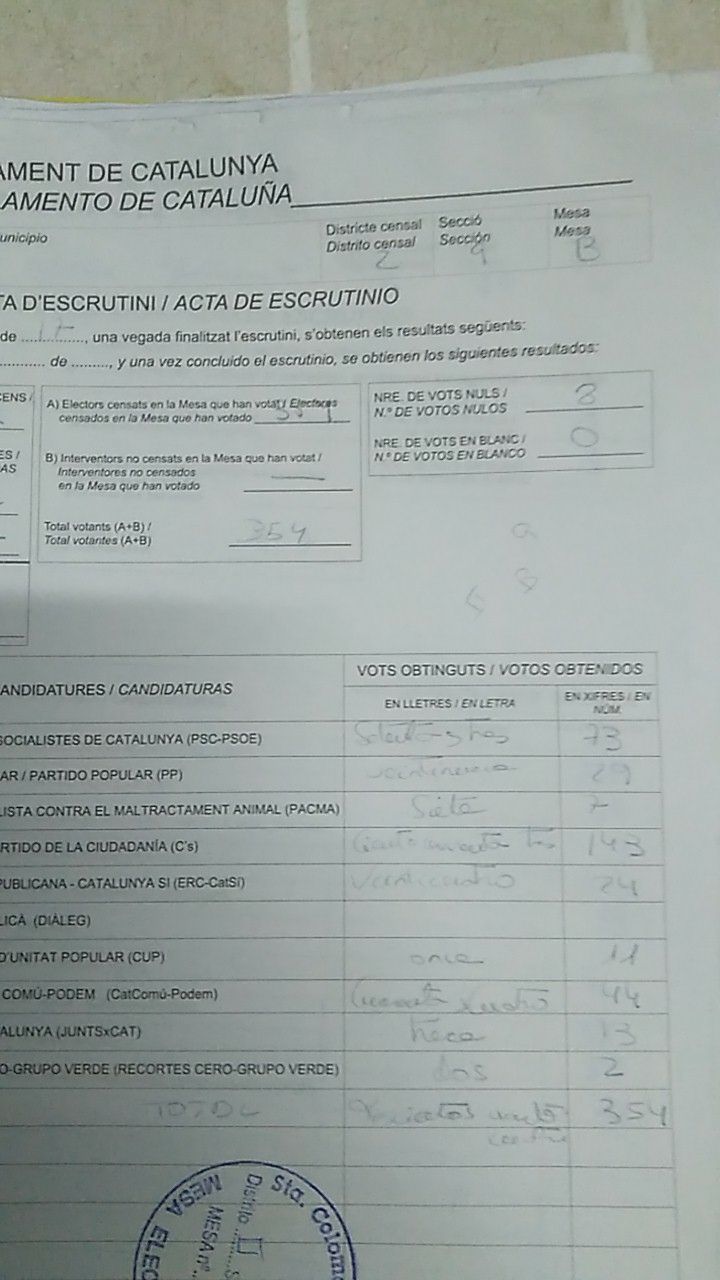 AMENT DE CATALUNYA
LAMENTO DE CATALUÑA
unicipio
Districte censal
Distrito censal
2
Secció
Sección
Mesa
Mesa
B
TA D'ESCRUTINI / ACTA DE ESCRUTINIO
de ............, una vegada finalitzat l'escrutini, s'obtenen els resultats següents:
............ de ........., y una vez concluido el escrutinio, se obtienen los siguientes resultados:
CENS /
ES /
AS
A) Electors censats en la Mesa que han votat / Electores
censados en la Mesa que han votado
B) Interventors no censats en la Mesa que han votat /
Interventores no censados
en la Mesa que han votado
Total votants (A+B) /
Total votantes (A+B)
354
NRE. DE VOTS NULS /
N.º DE VOTOS NULOS
8
NRE. DE VOTS EN BLANC /
N.º DE VOTOS EN BLANCO
0
ANDIDATURES / CANDIDATURAS
VOTS OBTINGUTS / VOTOS OBTENIDOS
EN LLETRES / EN LETRA
EN XIFRES / EN
NÚM.
SOCIALISTES DE CATALUNYA (PSC-PSOE) Setenta y tres 73
AR / PARTIDO POPULAR (PP) veintinueve 29
LISTA CONTRA EL MALTRACTAMENT ANIMAL (PACMA) Siete 7
RTIDO DE LA CIUDADANÍA (C's) 143
PUBLICANA - CATALUNYA SI (ERC-CatSí) Veinticuatro 24
LICÀ (DIÀLEG)
D'UNITAT POPULAR (CUP) once 11
COMÚ-PODEM (CatComú-Podem) Cuarenta y cuatro 44
ALUNYA (JUNTSxCAT) trece 13
O-GRUPO VERDE (RECORTES CERO-GRUPO VERDE) dos 2
TOTAL 354
Sta. Colom
MESA ELEC
Distrito II
MESA nº